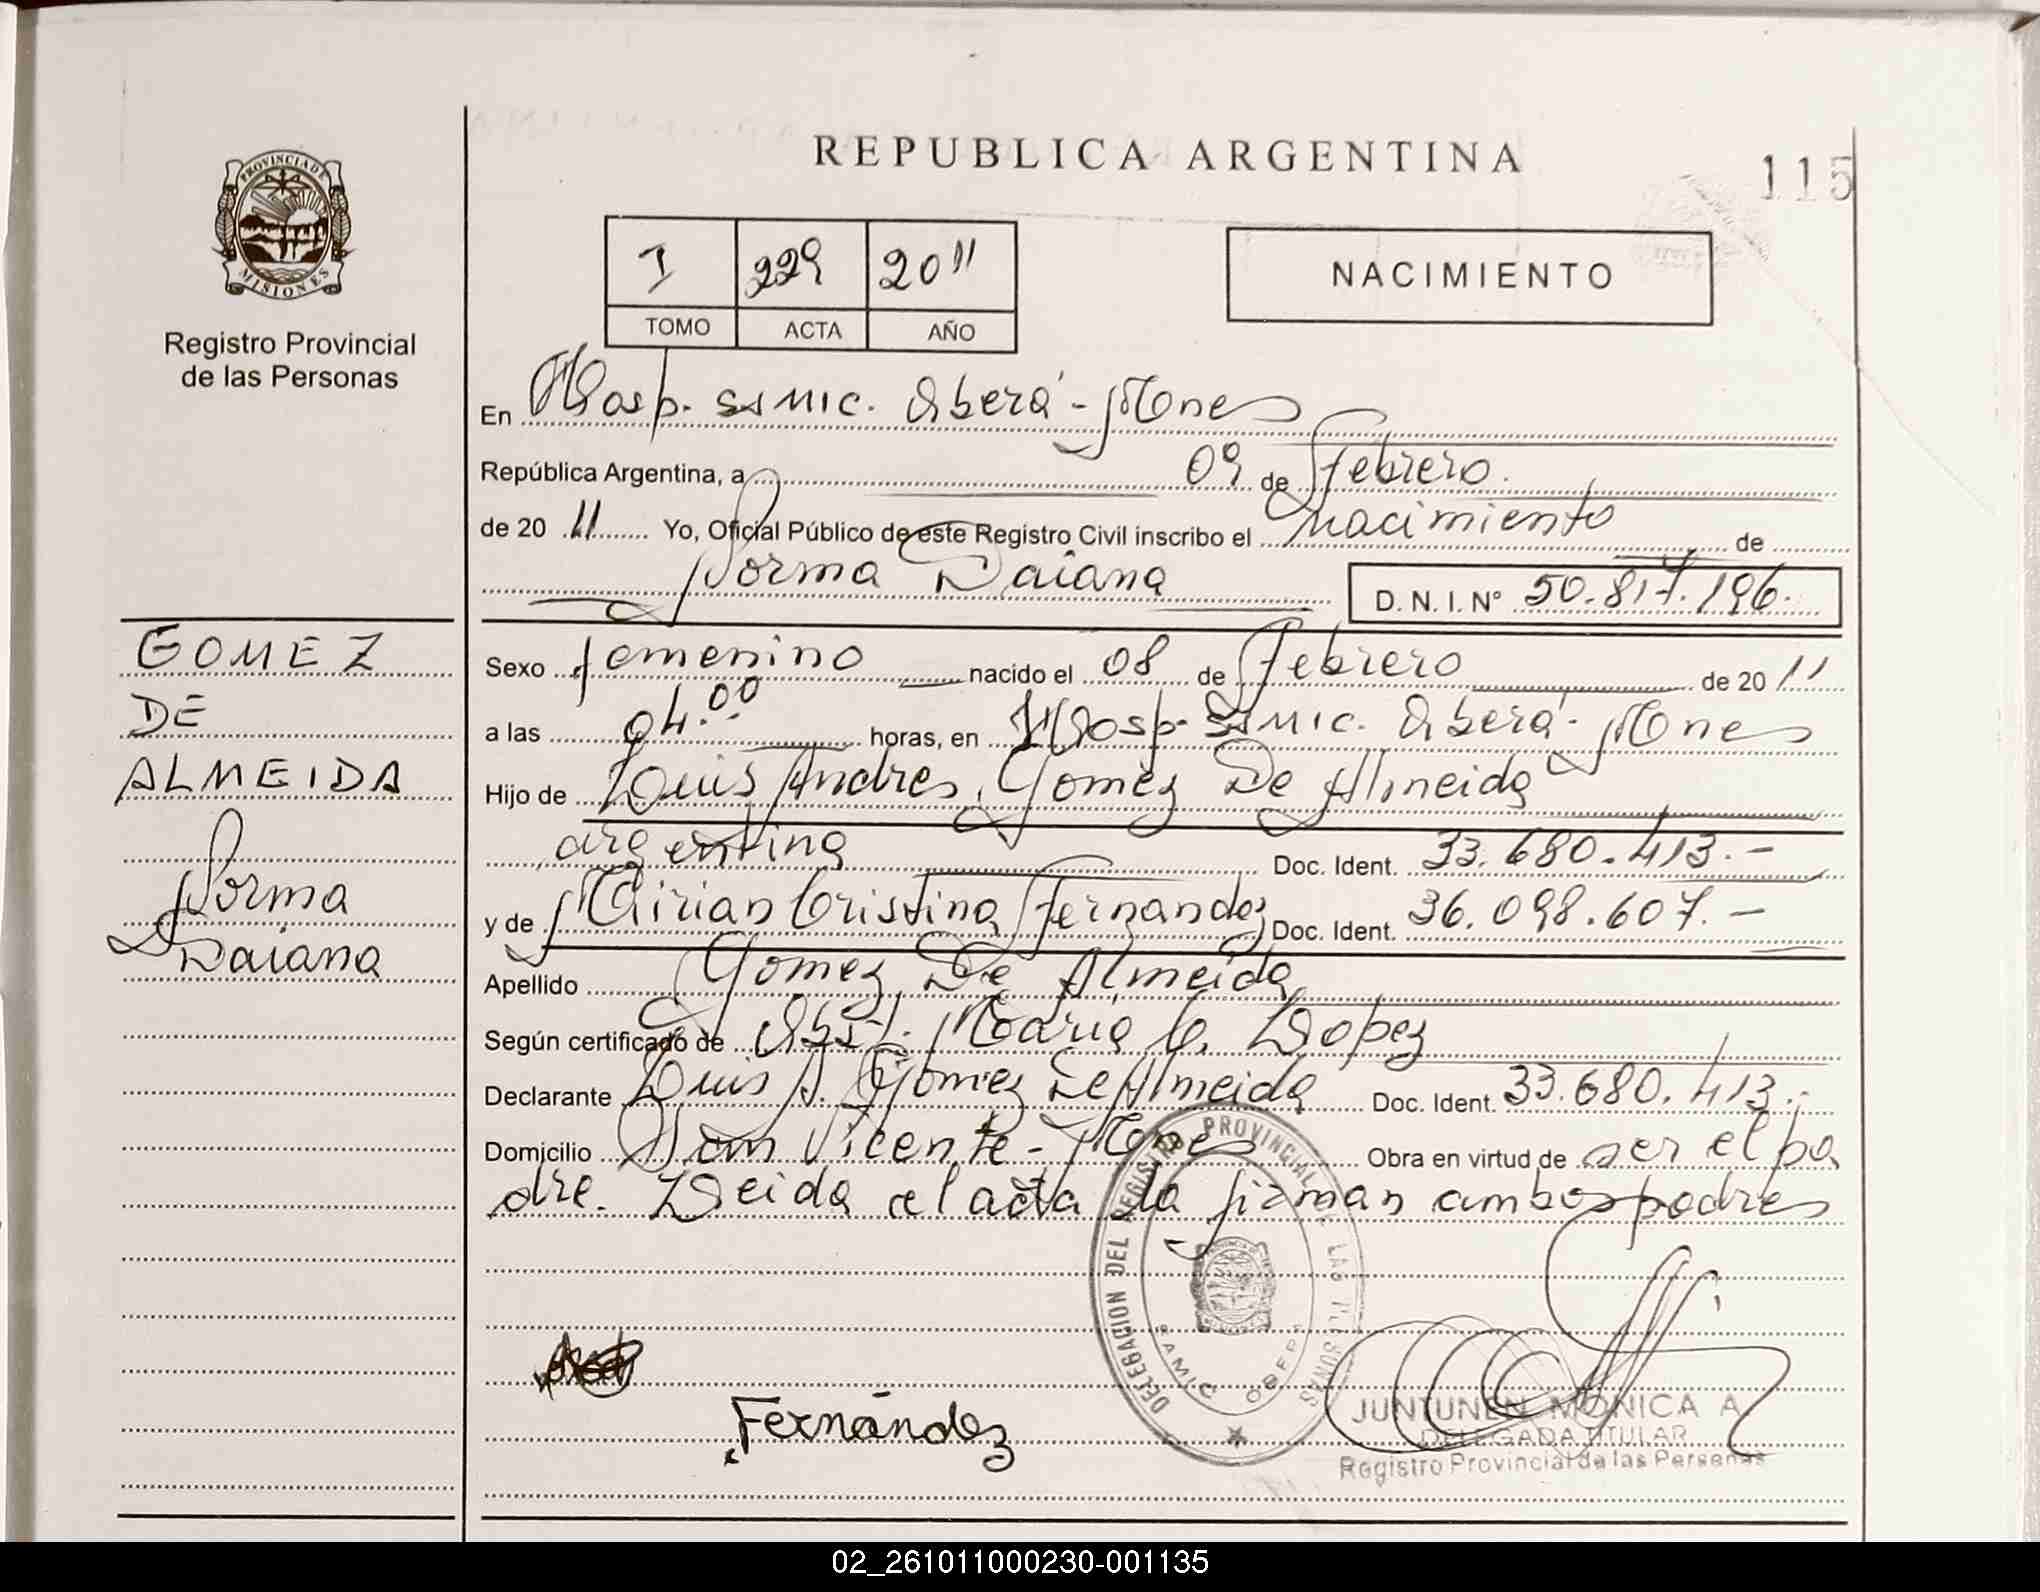 REPUBLICA ARGENTINA
115
PROVINCIA DE
MISIONES
Registro Provincial
de las Personas
I 229 2011
TOMO ACTA AÑO
NACIMIENTO
En Hosp. SAMIC. Oberá - Mones
República Argentina, a 09 de Febrero.
de 20 11 Yo, Oficial Público de este Registro Civil inscribo el nacimiento de
Norma Daiana D. N. I. Nº 50.817.196.
GOMEZ
DE
ALMEIDA
Norma
Daiana
Sexo femenino nacido el 08 de Febrero de 20 11
a las 04.00 horas, en Hosp. SAMIC. Oberá - Mones
Hijo de Luis Andres Gomez De Almeida
argentina Doc. Ident. 33.680.413.-
y de Mirian Cristina Fernandez Doc. Ident. 36.098.607.-
Apellido Gomez De Almeida
Según certificado de Obst. Maria C. Lopez
Declarante Luis A. Gomez De Almeida Doc. Ident. 33.680.413.-
Domicilio San Vicente - Mones Obra en virtud de ser el pa
dre. Leida el acta la firman ambos padres
DELEGACION DEL REGISTRO PROVINCIAL DE LAS PERSONAS
SAMIC OBERA
Fernández
JUNTUNEN MONICA A
DELEGADA TITULAR
Registro Provincial de las Personas
02_261011000230-001135